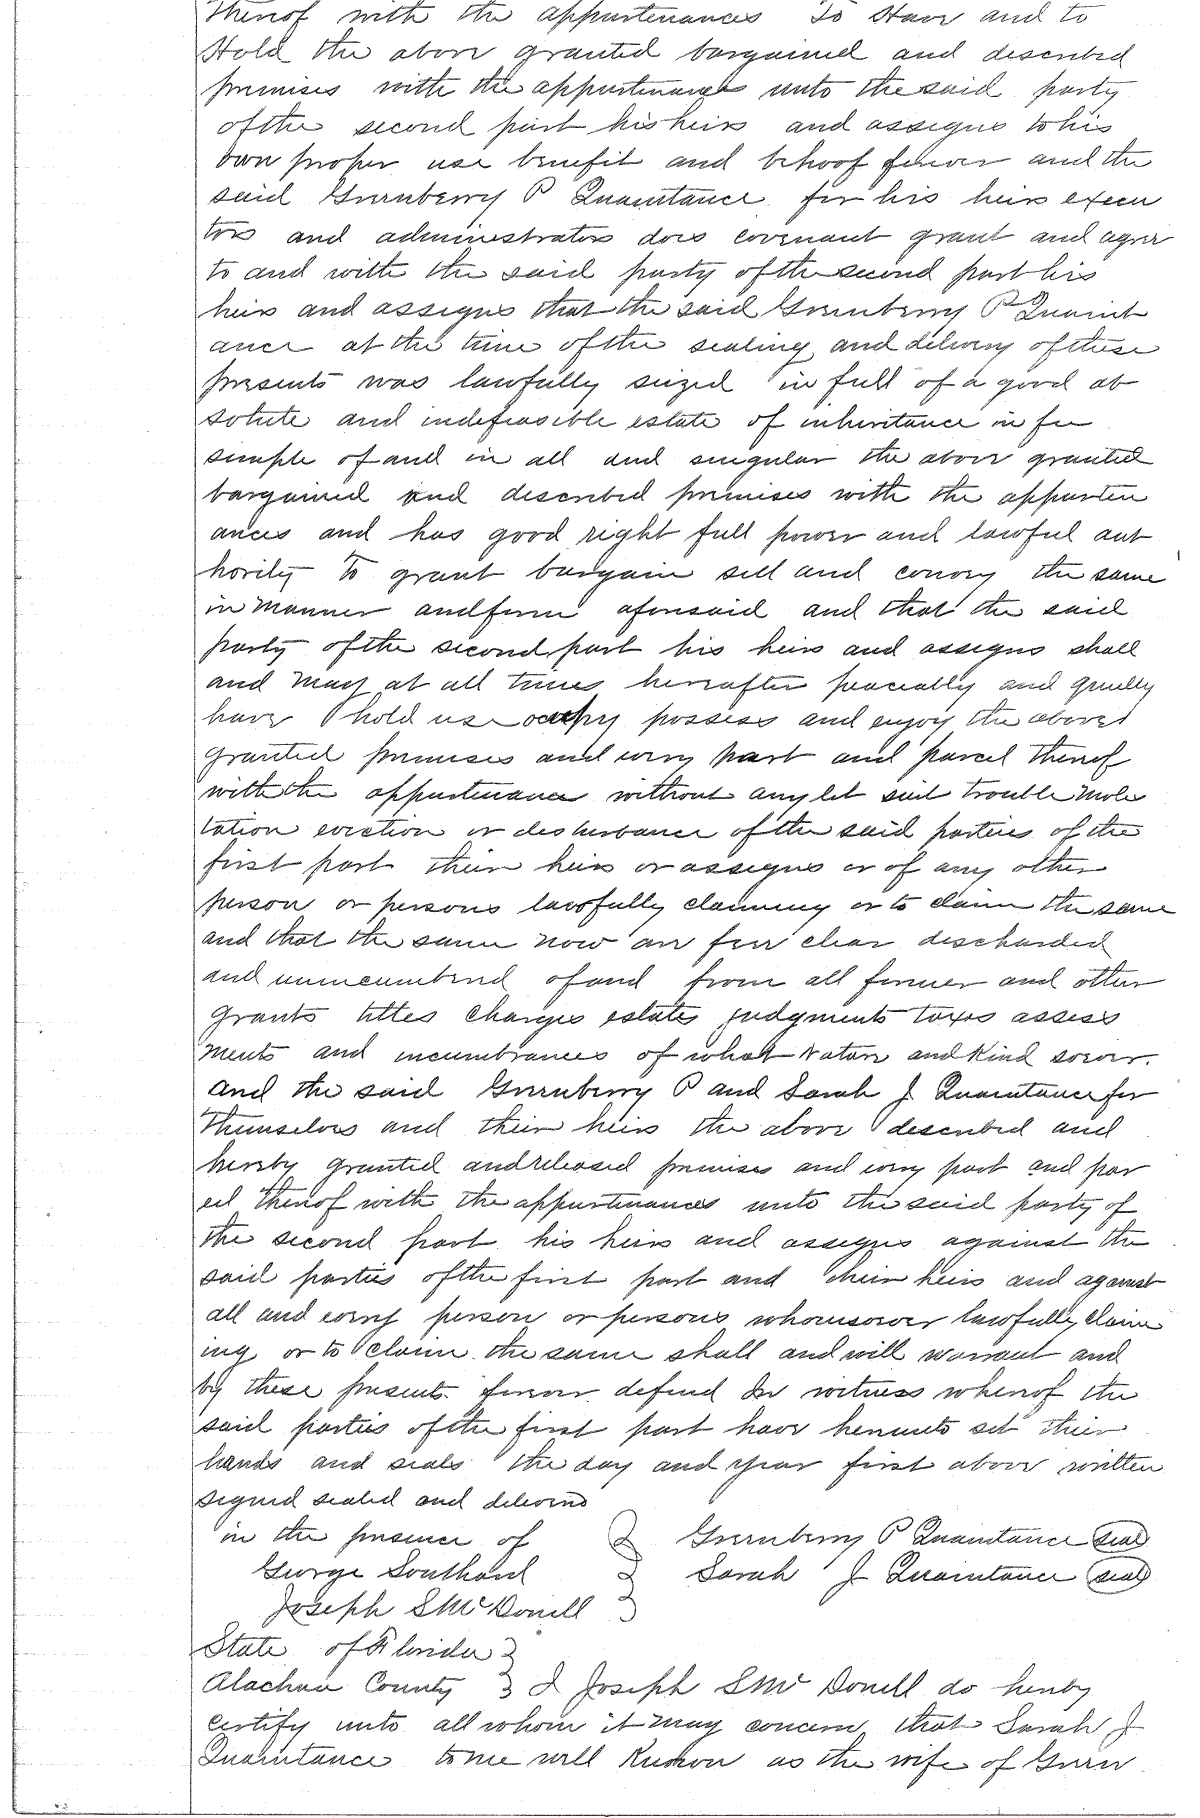 thereof with the appurtenances To Have and to
Hold the above granted bargained and described
premises with the appurtenances unto the said party
of the second part his heirs and assigns to his
own proper use benefit and behoof forever and the
said Greenberry P Quaintance for his heirs execu
tors and administrators does covenant grant and agree
to and with the said party of the second part his
heirs and assigns that the said Greenberry P Quaint
ance at the time of the sealing and delivery of these
presents was lawfully seized in full of a good ab
solute and indefeasible estate of inheritance in fee
simple of and in all and singular the above granted
bargained and described premises with the appurten
ances and has good right full power and lawful aut
hority to grant bargain sell and convey the same
in manner and form aforesaid and that the said
party of the second part his heirs and assigns shall
and may at all times hereafter peaceably and quietly
have hold use occupy possess and enjoy the above
granted premises and every part and parcel thereof
with the appurtenance without any let suit trouble moles
tation eviction or desturbance of the said parties of the
first part their heirs or assigns or of any other
person or persons lawfully claiming or to claim the same
and that the same now are free clear discharded
and unincumbered of and from all former and other
grants titles charges estates judgments taxes assess
ments and incumbrances of what nature and kind soever.
and the said Greenberry P and Sarah J Quaintance for
themselves and their heirs the above described and
hereby granted and released premises and every part and par
cel thereof with the appurtenances unto the said party of
the second part his heirs and assigns against the
said parties of the first part and their heirs and against
all and every person or persons whomsoever lawfully claim
ing or to claim the same shall and will warrant and
by these presents forever defend In witness whereof the
said parties of the first part have hereunto set their
hands and seals the day and year first above written
signed sealed and delivered
in the presence of } Greenberry P Quaintance seal
George Southard } Sarah J Quaintance seal
Joseph S Mc Donell }
State of Florida }
Alachua County } I Joseph S Mc Donell do hereby
certify unto all whom it may concern that Sarah J
Quaintance to me well known as the wife of Green